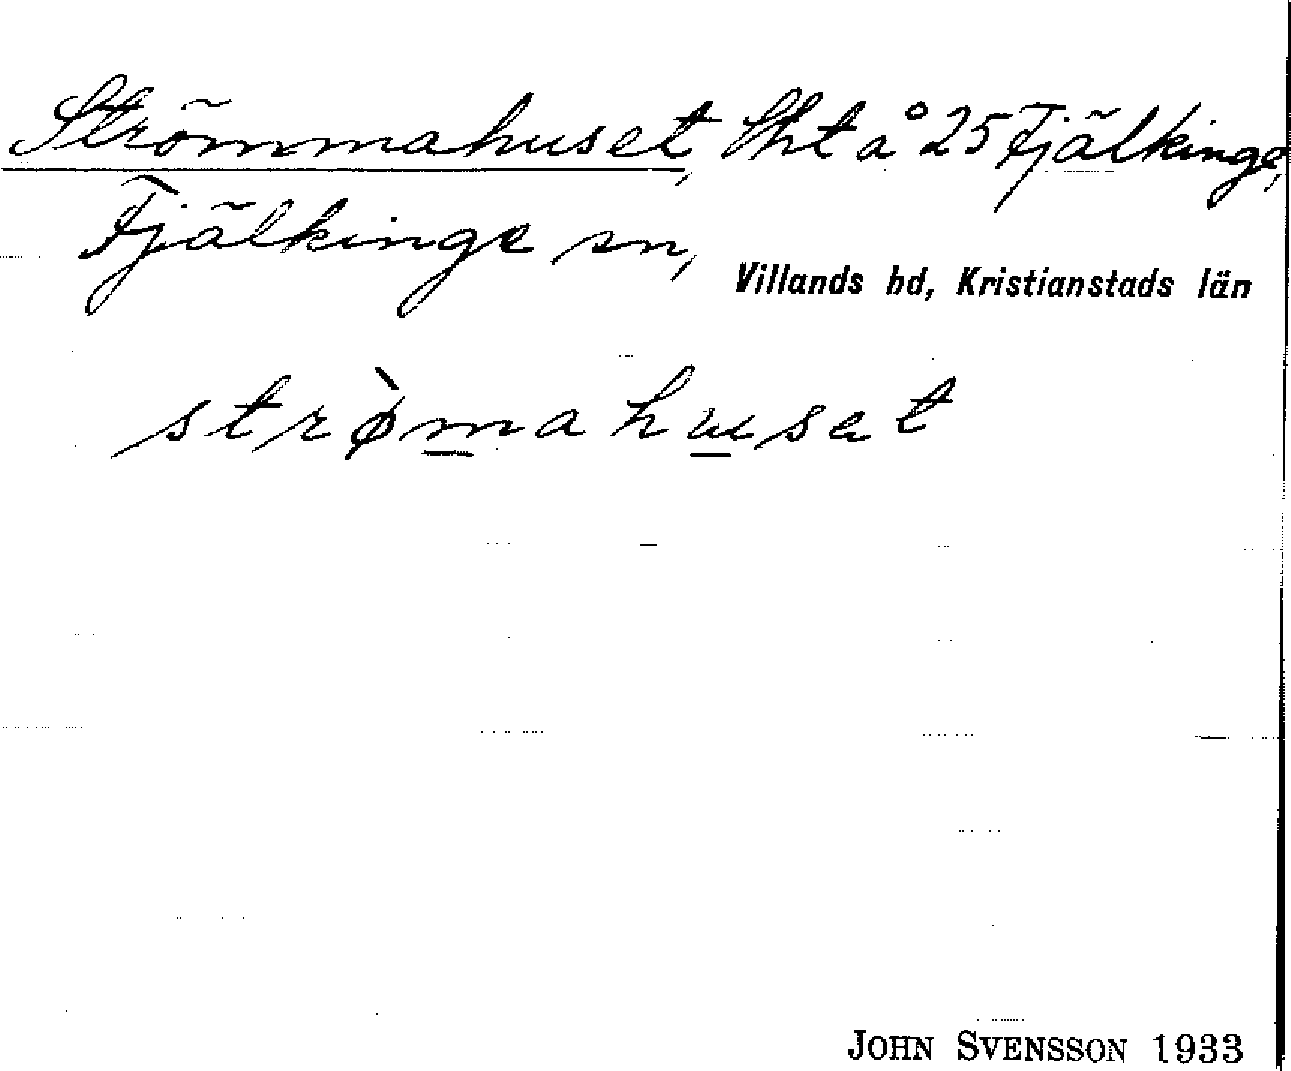 Strömmahuset, Sht å 25 Fjälkinge,
Fjälkinge sn,
Villands hd, Kristianstads län
strø̀mahusat
JOHN SVENSSON 1933